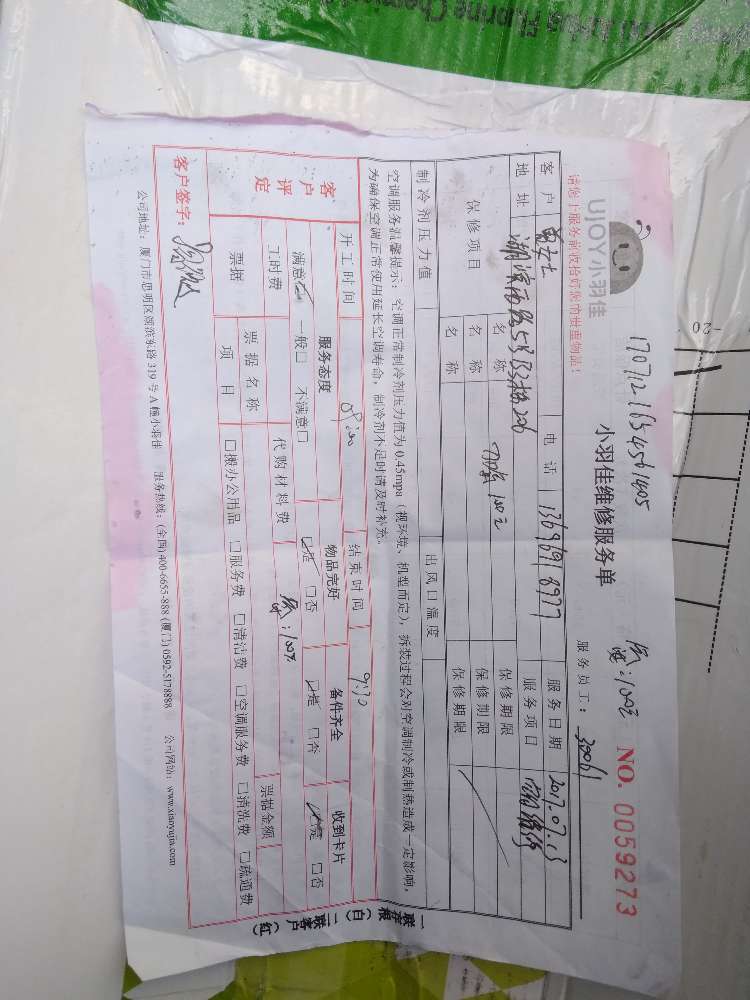 1707121634561405
UJOY小羽佳
小羽佳维修服务单
NO. 0059273
100元
请您上服务前收拾好您的贵重物品!
服务员工:
客户 女士 电话 13696918977 服务日期 2017.07.13
地址 湖滨西路 服务项目 空调维修
保修项目 名称 加氟100元 保修期限
名称 保修期限
名称 保修期限
制冷剂压力值 出风口温度
空调服务温馨提示:空调正常制冷剂压力值为0.45mpa(视环境、机型而定),拆装过程会对空调制冷或制热造成一定影响,
为确保空调正常使用延长空调寿命,制冷剂不足时请及时补充。
开工时间 8:00 结束时间 9:30
客户评定
服务态度 物品完好 备件齐全 收到卡片
满意□ 一般□ 不满意□ □是 □否 □是 □否 □是 □否
工时费 代购材料费 100元
票据 票据名称 票据金额
项目 □搬办公用品 □服务费 □清洁费 □空调服务费 □清洗费 □疏通费
客户签字:
一联存根(白) 二联客户(红)
公司地址:厦门市思明区湖滨东路319号A幢小羽佳 服务热线:(全国)400-6655-888 (厦门)0592-5178888 公司网站:www.xiaoyujia.com
-20
Fluorine Chemical